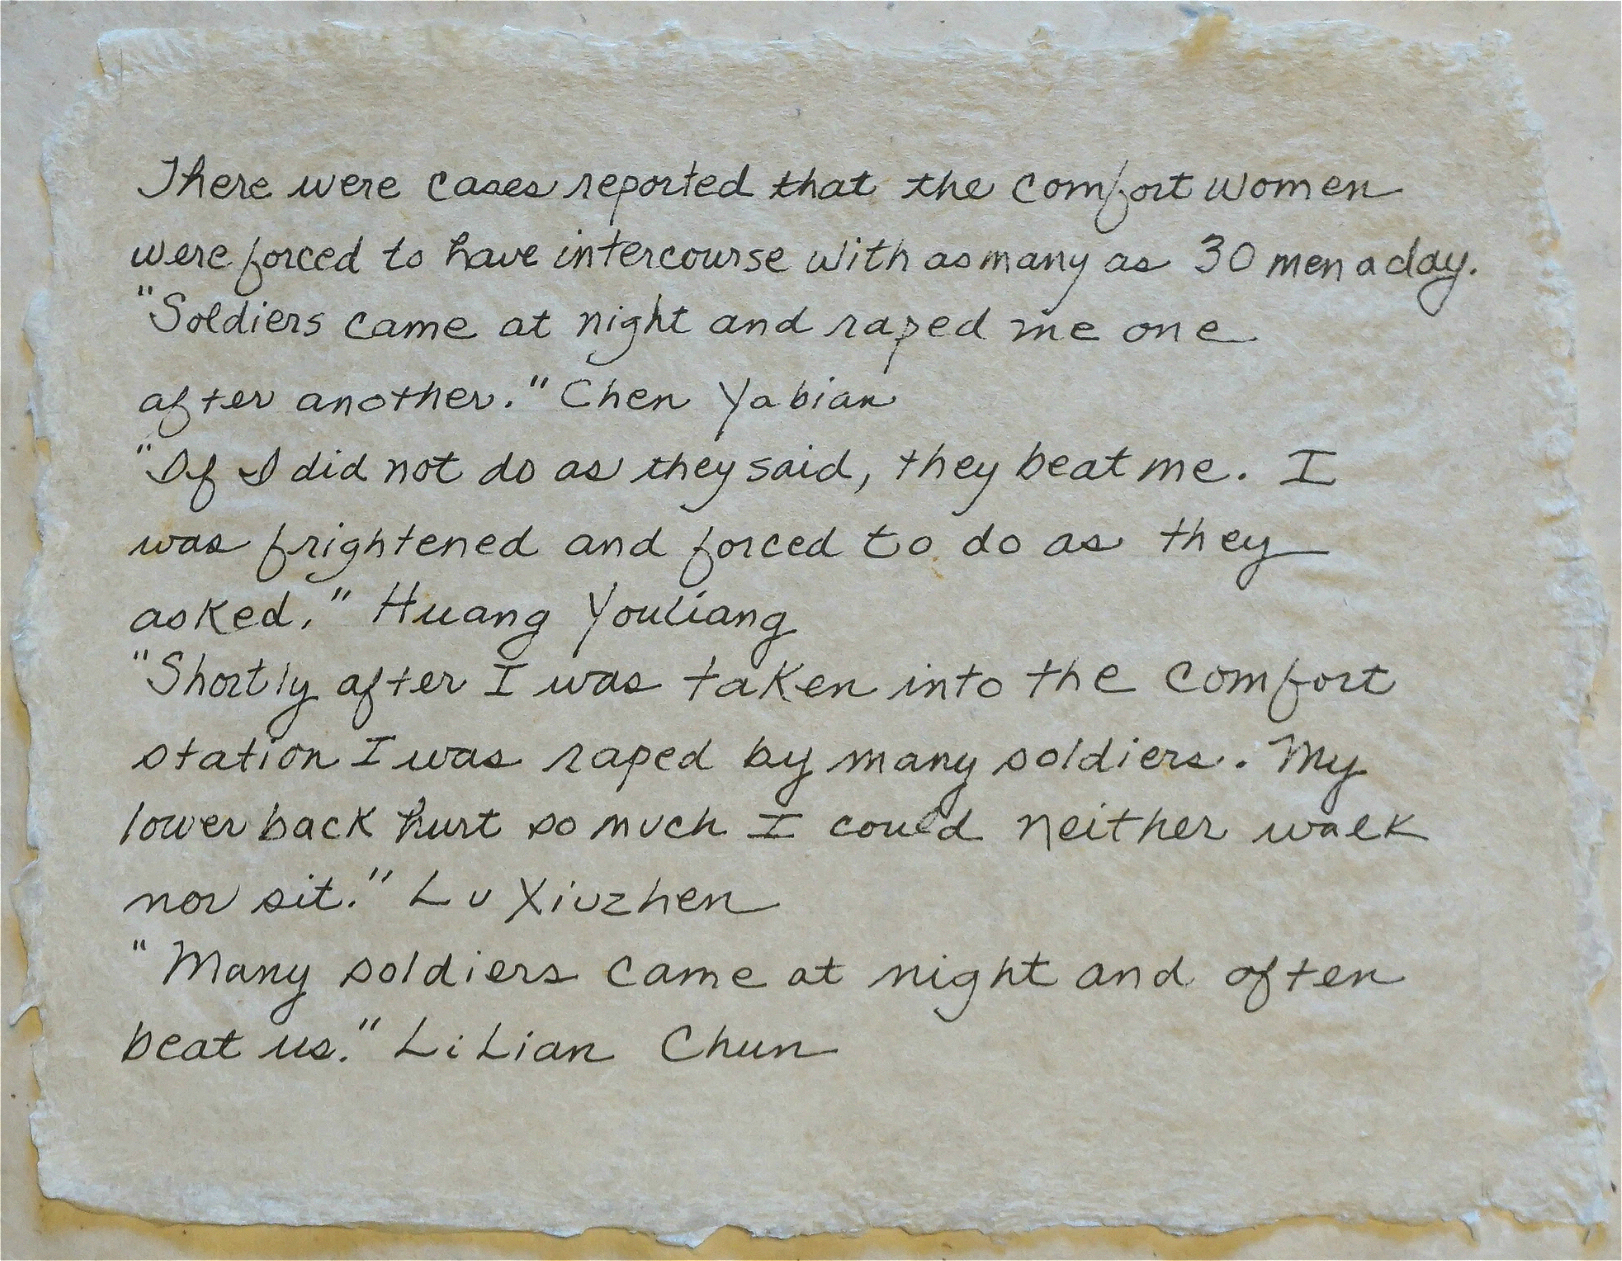 There were cases reported that the comfort women
were forced to have intercourse with as many as 30 men a day.
"Soldiers came at night and raped me one
after another." Chen Yabian
"If I did not do as they said, they beat me. I
was frightened and forced to do as they
asked." Huang Youliang
"Shortly after I was taken into the comfort
station I was raped by many soldiers. My
lower back hurt so much I could neither walk
nor sit." Lu Xiuzhen
"Many soldiers came at night and often
beat us." Li Lian Chun